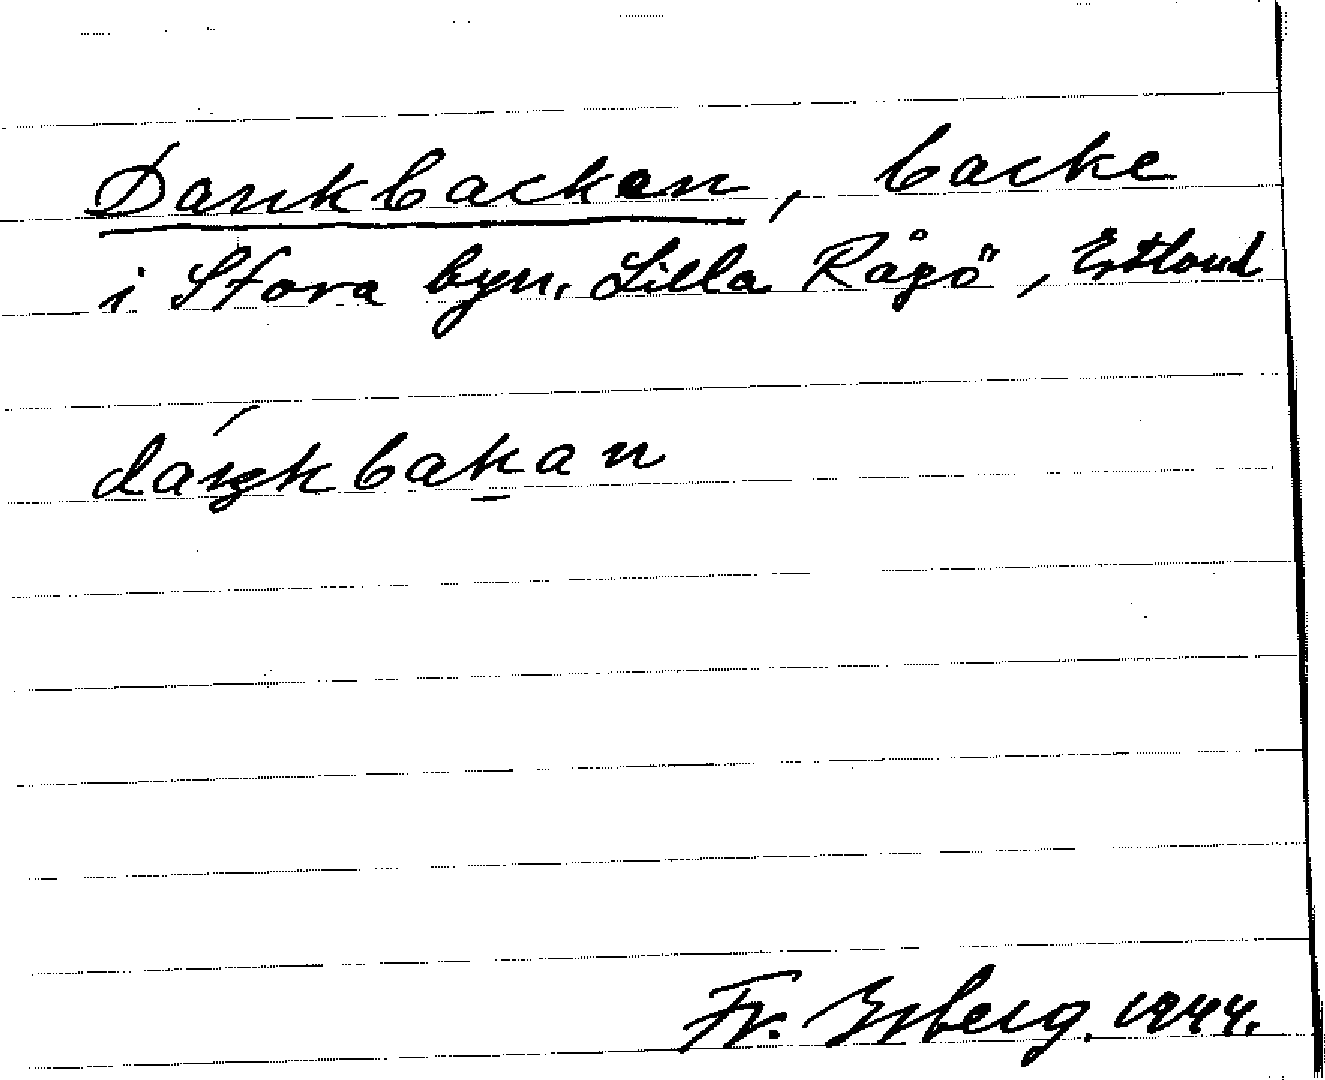 Dankbacken, backe
i Stora byn, Lilla Rågö, Estland
dáŋkbaḵan
Fr. Isberg. 1944.